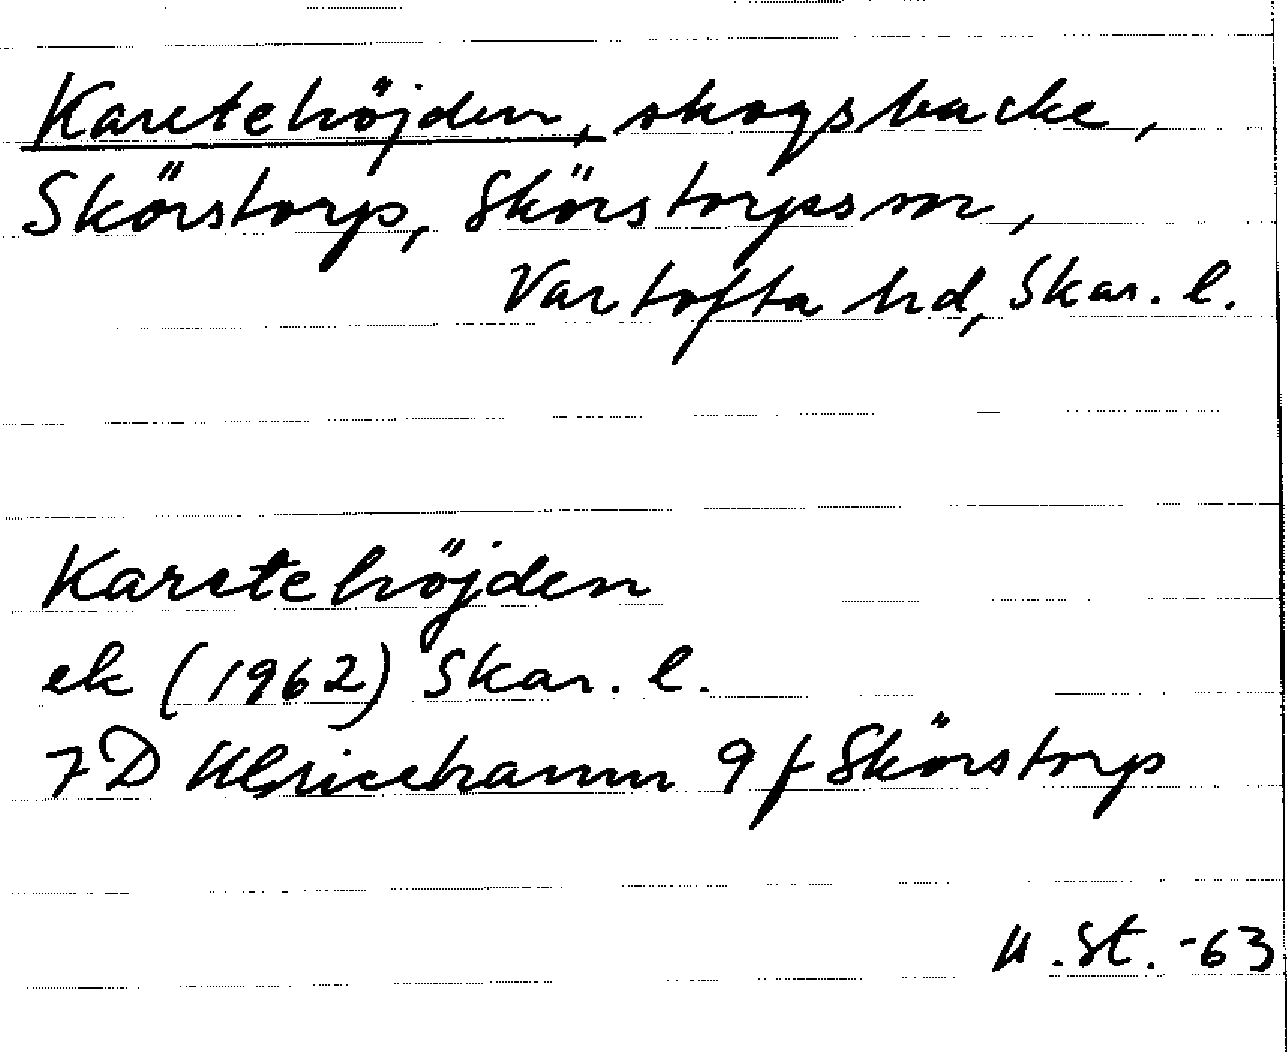 Karetehöjden, skogsbacke,
Skörstorp, Skörstorps sn,
Vartofta hd, Skar. l.
Karetehöjden
ek (1962) Skar. l.
7D Ulricehamn 9f Skörstorp
U. St. -63